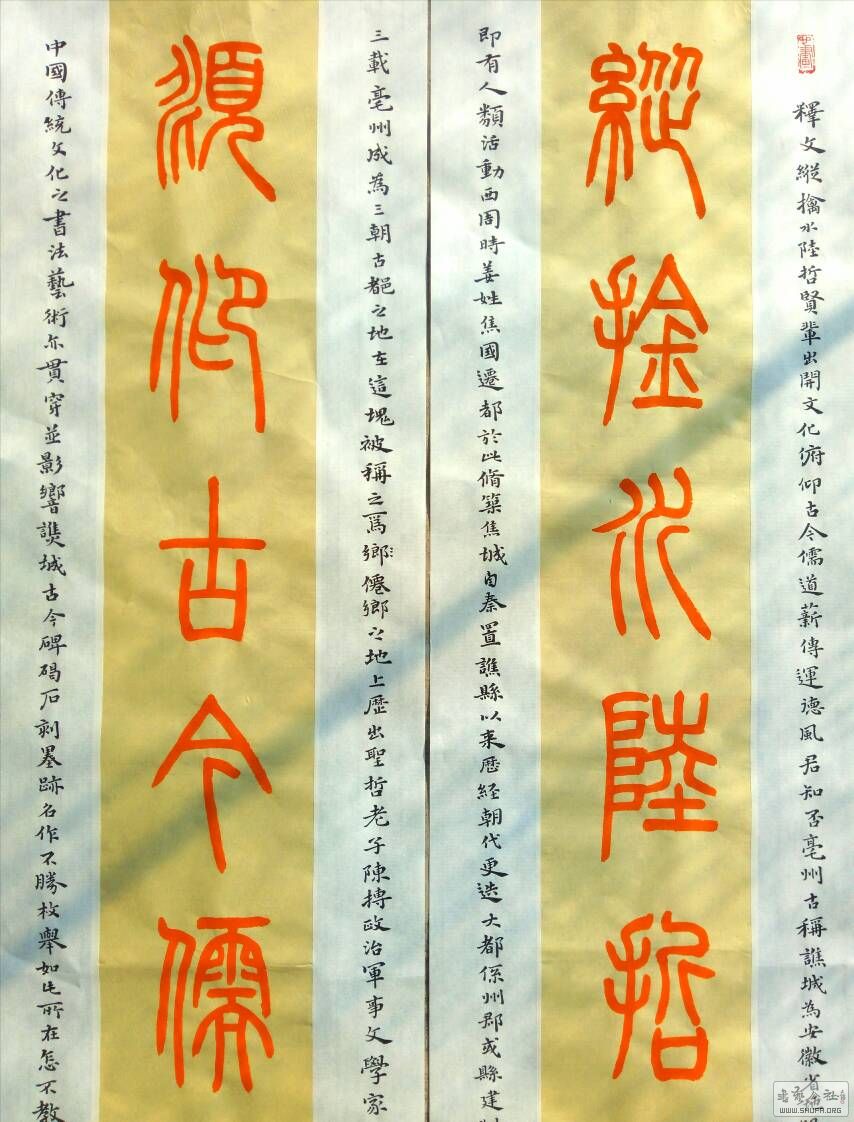 釋文縱擒水陸哲賢輩出開文化俯仰古今儒道薪傳運德風君知否亳州古稱譙城為安徽省
縱擒水陸哲
即有人類活動西周時姜姓焦國遷都於此脩築焦城自秦置譙縣以来歷经朝代更迭大都係州郡或縣建制
三載亳州成為三朝古都之地在這塊被稱之為鄉僊鄉之地上歷出聖哲老子陳摶政治軍事文學家
頫仰古今儒
中國傳統文化之書法藝術亦貫穿並影響譙城古今碑碣石刻墨跡名作不勝枚舉如此所在怎不教
WWW.SHUFA.ORG